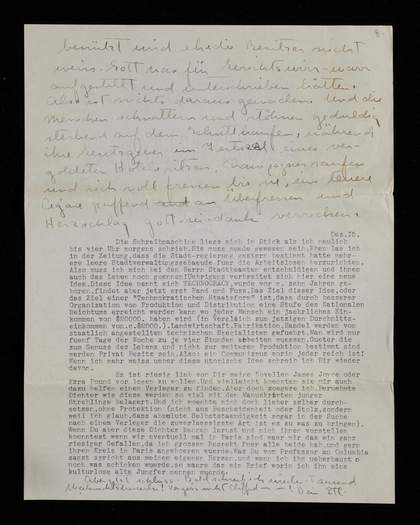 8.
benützt und ehe die Besitzer nicht
weiss Gott was für Gerichts wirr-warr
angestellt und unterschrieben hätten.
Also ist nichts daraus geworden. Und die
Menschen schnattern und stöhnen geduldig
sterbend auf dem Schutthaufen, während
ihre Gesetzgeber im Zentral eines ver-
goldeten Hotels sitzen, Champagner saufen
und sich voll fressen bis sie, ein teuere
Cigare puffend an überfressen und
Herzschlag gott-sei-danke verrecken.
Dez.15.
Die Schreibmaschine liess mich im Stick als ich neulich
bis vier Uhr morgens schrieb. Sie muss muede gewesen sein. Eben las ich
in der Zeitung, dass die Stadt-regierung gestern bestimmt hatte mehr-
ere leere Stadtverwaltungsgebaeude fuer die Arbeitslosen herzurichten.
Also muss ich mich bei den Herrn Stadtbeamten entschuldigen und ihnen
auch das Leben noch goennen! Uebrigens verbreitet sich hier eine neue
Idee. Diese Idee nennt sich TECHNOCRACY, wurde vor c. zehn Jahren ge-
boren, findet aber jetzt erst Hand und Fuss. Das Ziel dieser Idee, oder
das Ziel einer "Technokratischen Staatsform" ist, dass durch bessere
Organisation von Produktion und Distribution eine Stufe des Nationalen
Reichtums erreicht werden kann wo jeder Mensch ein jaehrliches Ein-
kommen von $20000. haben wird (in Vergleich zum jetzigen Durchschnitts-
einkommen von c.$2000.). Landwirtschaft, Fabrikation, Handel werden von
staatlich angestellten technischen Spezialisten gefuehrt. Man wird nur
fuenf Tage der Woche zu je vier Stunden arbeiten muessen. Gueter die
zum Genuss des Lebens und nicht zur weiteren Produktion bestimmt sind,
werden Privat Besitz sein. Also: ein Communismus worin jeder reich ist!
Wenn ich mehr weiss ueber diese utopische Idee schreib ich Dir wieder
davon.
Es ist riesig lieb von Dir meine Novellen James Joyce oder
Ezra Pound vor legen zu wollen. Und vielleicht koennten sie mir auch
dazu helfen einen Verleger zu finden. Aber doch zoegere ich. Beruehmte
Dichter wie diese werden so viel mit den Manuskripten junger
Strebling belagert. Und ich moechte mich doch lieber selber durch-
setzen, ohne Protektion (nicht aus Bescheidenheit oder Stolz, sondern
weil ich glaub, dass absolute Selbststaendigkeit sogar in der Suche
nach einem Verleger die zuverlaessigste Art ist es zu was zu bringen).
Wenn Du aber diese Dichter kennen lernst und mich ihnen vorstellen
koenntest wenn wir eventuell mal in Paris sind waer mir das ein ganz
riesiger Gefallen, da ich grossen Respekt fuer alle beide hab und gern
ihren Kreis in Paris angehoeren wuerde. Was Du vom Professor an Columbia
sagst spricht aus meinem eigenen Herzen. und wenn ich ihm ueberhaupt
noch was schicken wuerde, so waers das ein Brief worin ich ihm eine
kulturlose alte Jungfer nennen wuerde.